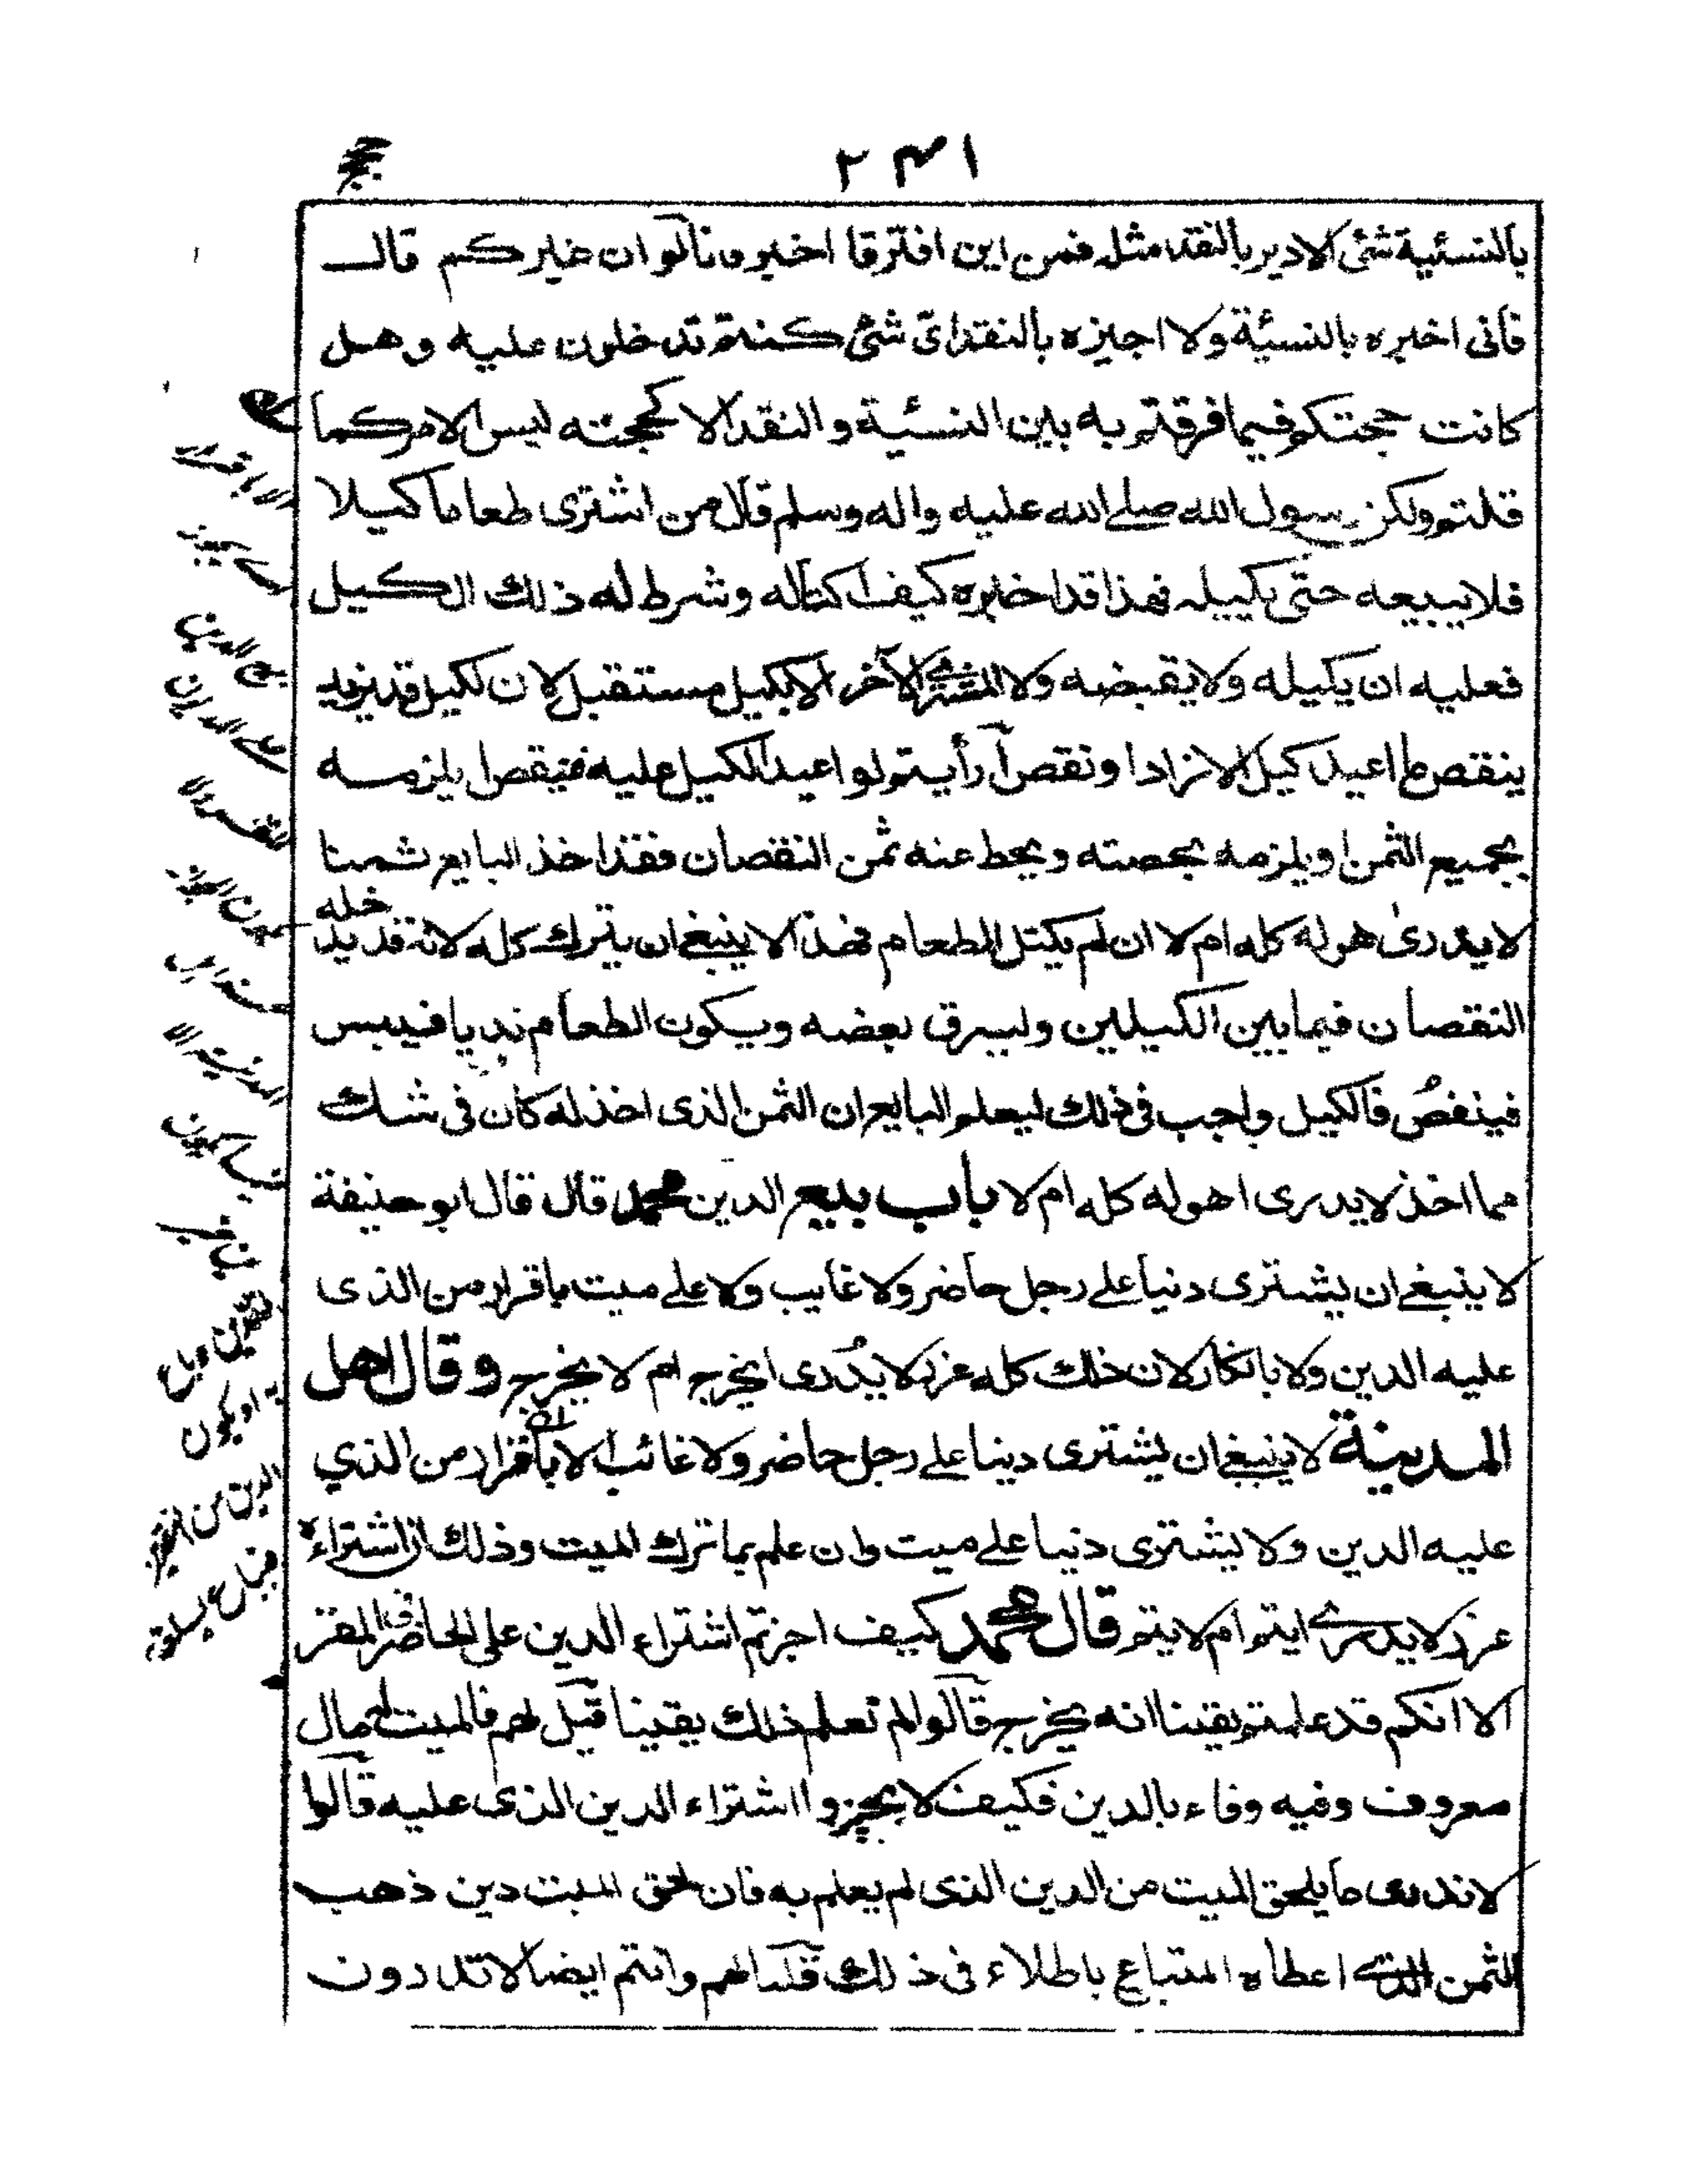 ٢٣١
بالنسئية شئ الا دير بالنقد مثله فمن اين افترقا اخبرونا قالوا ان خيركم قال
فانى اخبره بالنسئية ولا اجيزه بالنقد اى شئ كنتم تدخلون عليه وهل
كانت حجتكم فيما فرقتم به بين النسئية والنقد الا كحجته ليس الامر كما
قلتم ولكن رسول الله صلى الله عليه واله وسلم قال من اشترى طعاما كيلا
فلا يبيعه حتى يكيله فهذا قد اخبره كيف اكتاله وشرط له ذلك الكيل
فعليه ان يكيله ولا يقبضه ولا المشترى الآخر الا بكيل مستقبل لان لكيل قد يزيد
ينقص ما اعيد كيل الا زاد او نقص أرأيتم لو اعيد الكيل عليه فنيقص ايلزمه
بجميع الثمن او يلزمه بحصته ويحط عنه ثمن النقصان فقد اخذ البايع ثمنا
لا يدرى هو له كله ام لا ان لم يكتل الطعام فهذا لا ينبغى ان يترك كله لانه قد يدخله
النقصان فيما بين الكيلين وليسرق بعضه ويكون الطعام نديا فييبس
فينقص فالكيل واجب فى ذلك ليعلم البايع ان الثمن الذى اخذ له كان فى شك
مما اخذ لا يدرى اهو له كله ام لا باب بيع الدين محمد قال قال ابو حنيفة
لا ينبغى ان يشترى دنيا على رجل حاضر ولا غايب ولا على ميت باقرار من الذى
عليه الدين ولا بانكار لان ذلك كله غرر لا يدرى ايخرج ام لا يخرج وقال اهل
المدينة لا ينبغى ان يشترى دينا على رجل حاضر ولا غائب الا باقرار من الذي
عليه الدين ولا يشترى دنيا على ميت وان علم بما ترك الميت وذلك ان اشتراءه
غرر لا يدرى ايتم ام لا يتم قال محمد كيف اجزتم اشتراء الدين على الحاضر فى المقر
الا انكم قد علمتم يقينا انه يخرج قالوا لم نعلم ذلك يقينا قيل لهم فالميت له مال
معروف وفيه وفاء بالدين فكيف لا يجيزوا اشتراء الدين الذى عليه قالوا
لا ندرى ما يلحق الميت من الدين الذى لم يعلم به فان لحق الميت دين ذهب
الثمن الذى اعطاه المبتاع باطلاء فى ذلك قلنا لهم وانتم ايضا لا تدرون